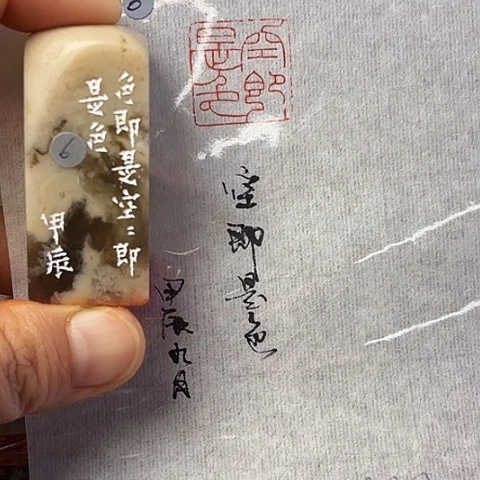 色即是空〻即
是色
甲辰
空即
是色
空即是色
甲辰九月